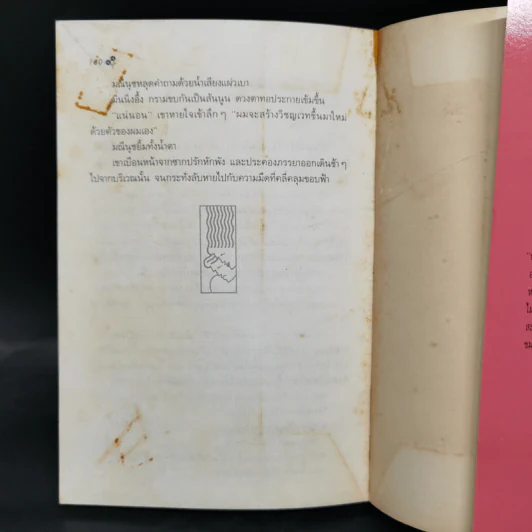 มณีนุชหลุดคำถามด้วยน้ำเสียงแผ่วเบา
ผินนิ่งอึ้ง กรามขบกันเป็นสันนูน ดวงตาทอประกายเข้มขึ้น
"แน่นอน" เขาหายใจเข้าลึก ๆ "ผมจะสร้างวิชญเวทขึ้นมาใหม่
ด้วยตัวของผมเอง"
มณีนุชยิ้มทั้งน้ำตา
เขาเบือนหน้าจากซากปรักหักพัง และประคองภรรยาออกเดินช้า ๆ
ไปจากบริเวณนั้น จนกระทั่งลับหายไปกับความมืดที่คลี่คลุมขอบฟ้า